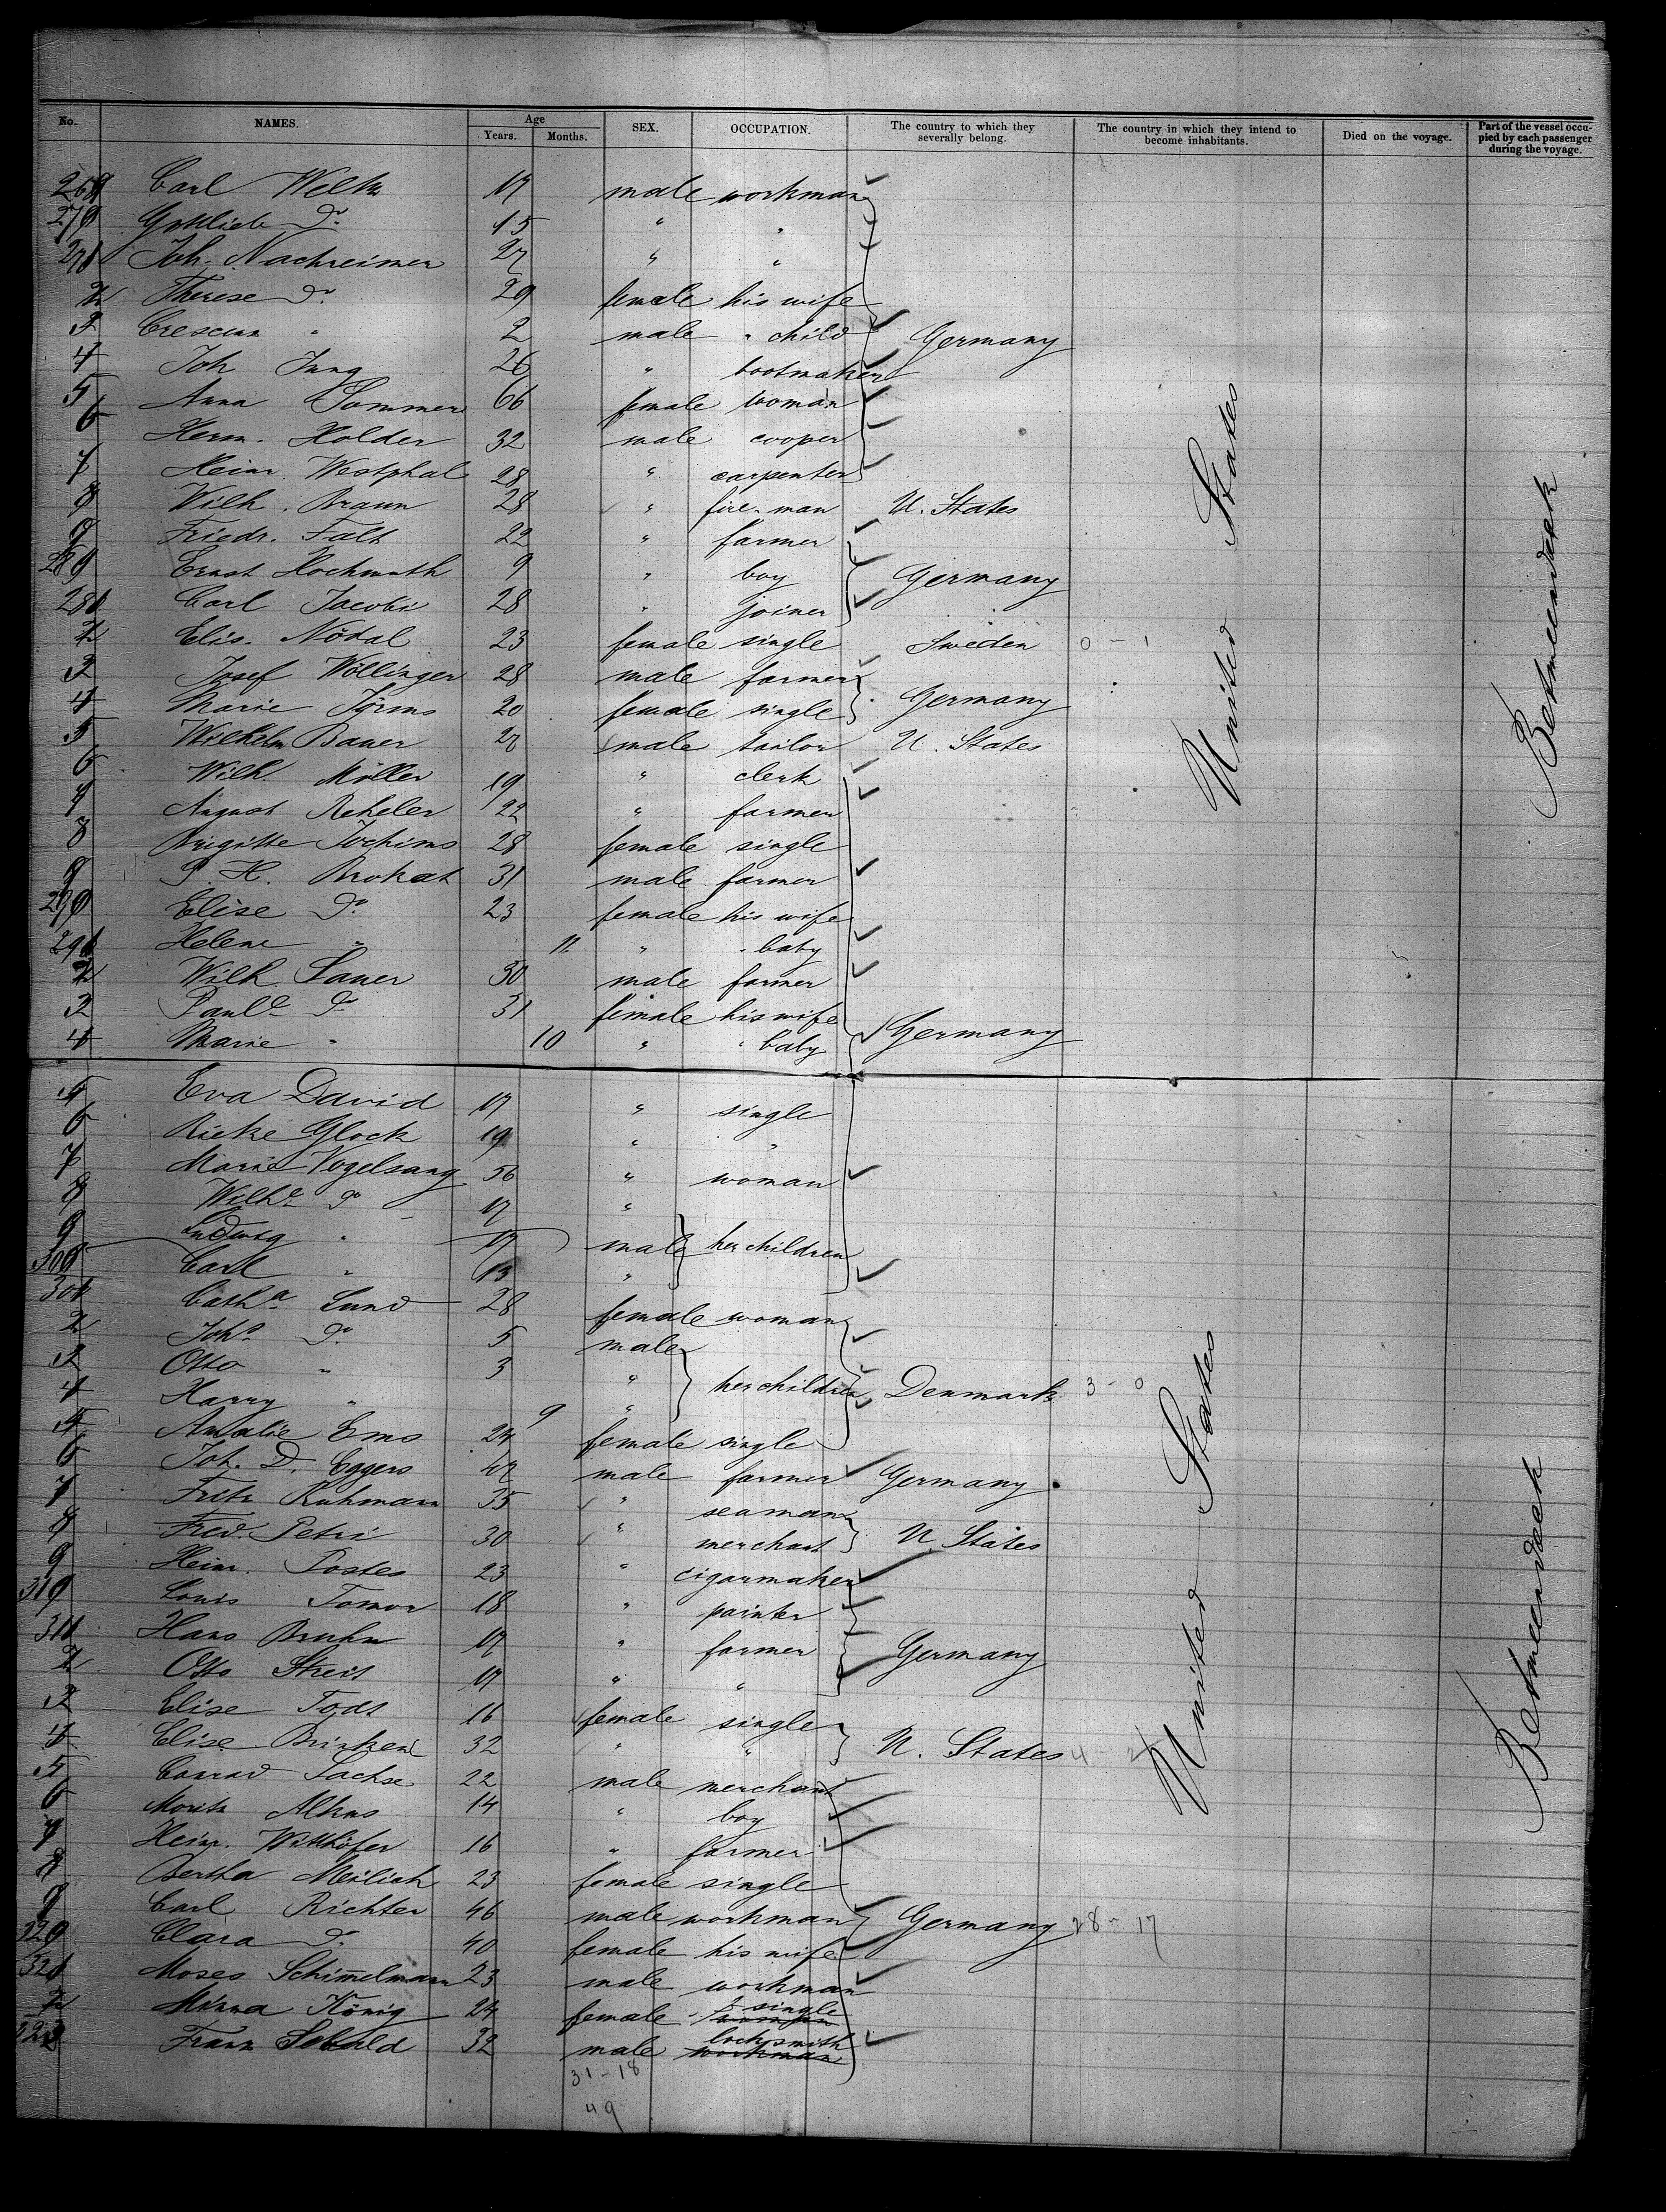 No. NAMES. Age Years. Months. SEX. OCCUPATION. The country to which they severally belong. The country in which they intend to become inhabitants. Died on the voyage. Part of the vessel occupied by each passenger during the voyage.
269 Carl 17 male workman
270 Gottlieb Do 15 " "
271 Joh. Nachreiner 27 " "
2 Therese Do 29 female his wife
3 " 2 male " child Germany
4 Joh Jung 26 " bootmaker
5 Anna Sommer 66 female woman
6 Herm. Holder 32 male cooper
7 Heinr. Westphal 28 " carpenter
8 Wilh. Braun 28 " fire-man U. States
9 Friedr. Falt 22 " farmer
280 Ernst Hochmuth 9 " boy Germany
281 Carl Jacobi 28 " joiner
2 Elis. Nödal 23 female single Sweden 0-1
3 Josef Wöllinger 28 male farmer
4 Marie Jörms 20 female single Germany
5 Wilhelm Bauer 27 male tailor U. States
6 Wilh. Möller 19 " clerk
7 August Reheler 22 " farmer
8 Brigitte Jochims 28 female single
9 P. H. Brokat 31 male farmer
290 Elise Do 23 female his wife
291 Helene " 11 " " baby
2 Wilh Sauer 30 male farmer
3 Paule Do 31 female his wife Germany
4 Marie " 10 " " baby
5 Eva David 17 " single
6 Rieke Glock 19 " "
7 Marie Vogelsang 56 " woman
8 Wilhe Do 17 "
9 Ludwig " 17 male her children
300 Carl " 13 "
301 Catha Lund 28 female woman
2 Joh Do 5 male
3 Otto " 3 " her children Denmark 3-0
4 Harry " 9 "
5 Amalie Ems 24 female single
6 Joh. D. Eggers 42 male farmer Germany
7 Fritz Ruhmann 35 " seaman
8 Fred. Petri 30 " merchant U. States
9 Heinr. Postes 23 " cigarmaker
310 Louis Tomor 18 " painter
311 Hans Bruhn 17 " farmer Germany
2 Otto Streit 17 " "
3 Elise Todt 16 female single
4 Elise 32 " " U. States 4-2
5 Conrad Sachse 22 male merchant
6 Moritz 14 " boy
7 Heinr. Witthöfer 16 " farmer
8 Bertha Meilich 23 female single
9 Carl Richter 46 male workman Germany 28-17
320 Clara Do 40 female his wife
321 Moses Schimelmann 23 male workman
2 Minna König 24 female single
323 Franz Sebald 32 male locksmith workman
31-18
49
United States
United States
Betweendeck
Betweendeck